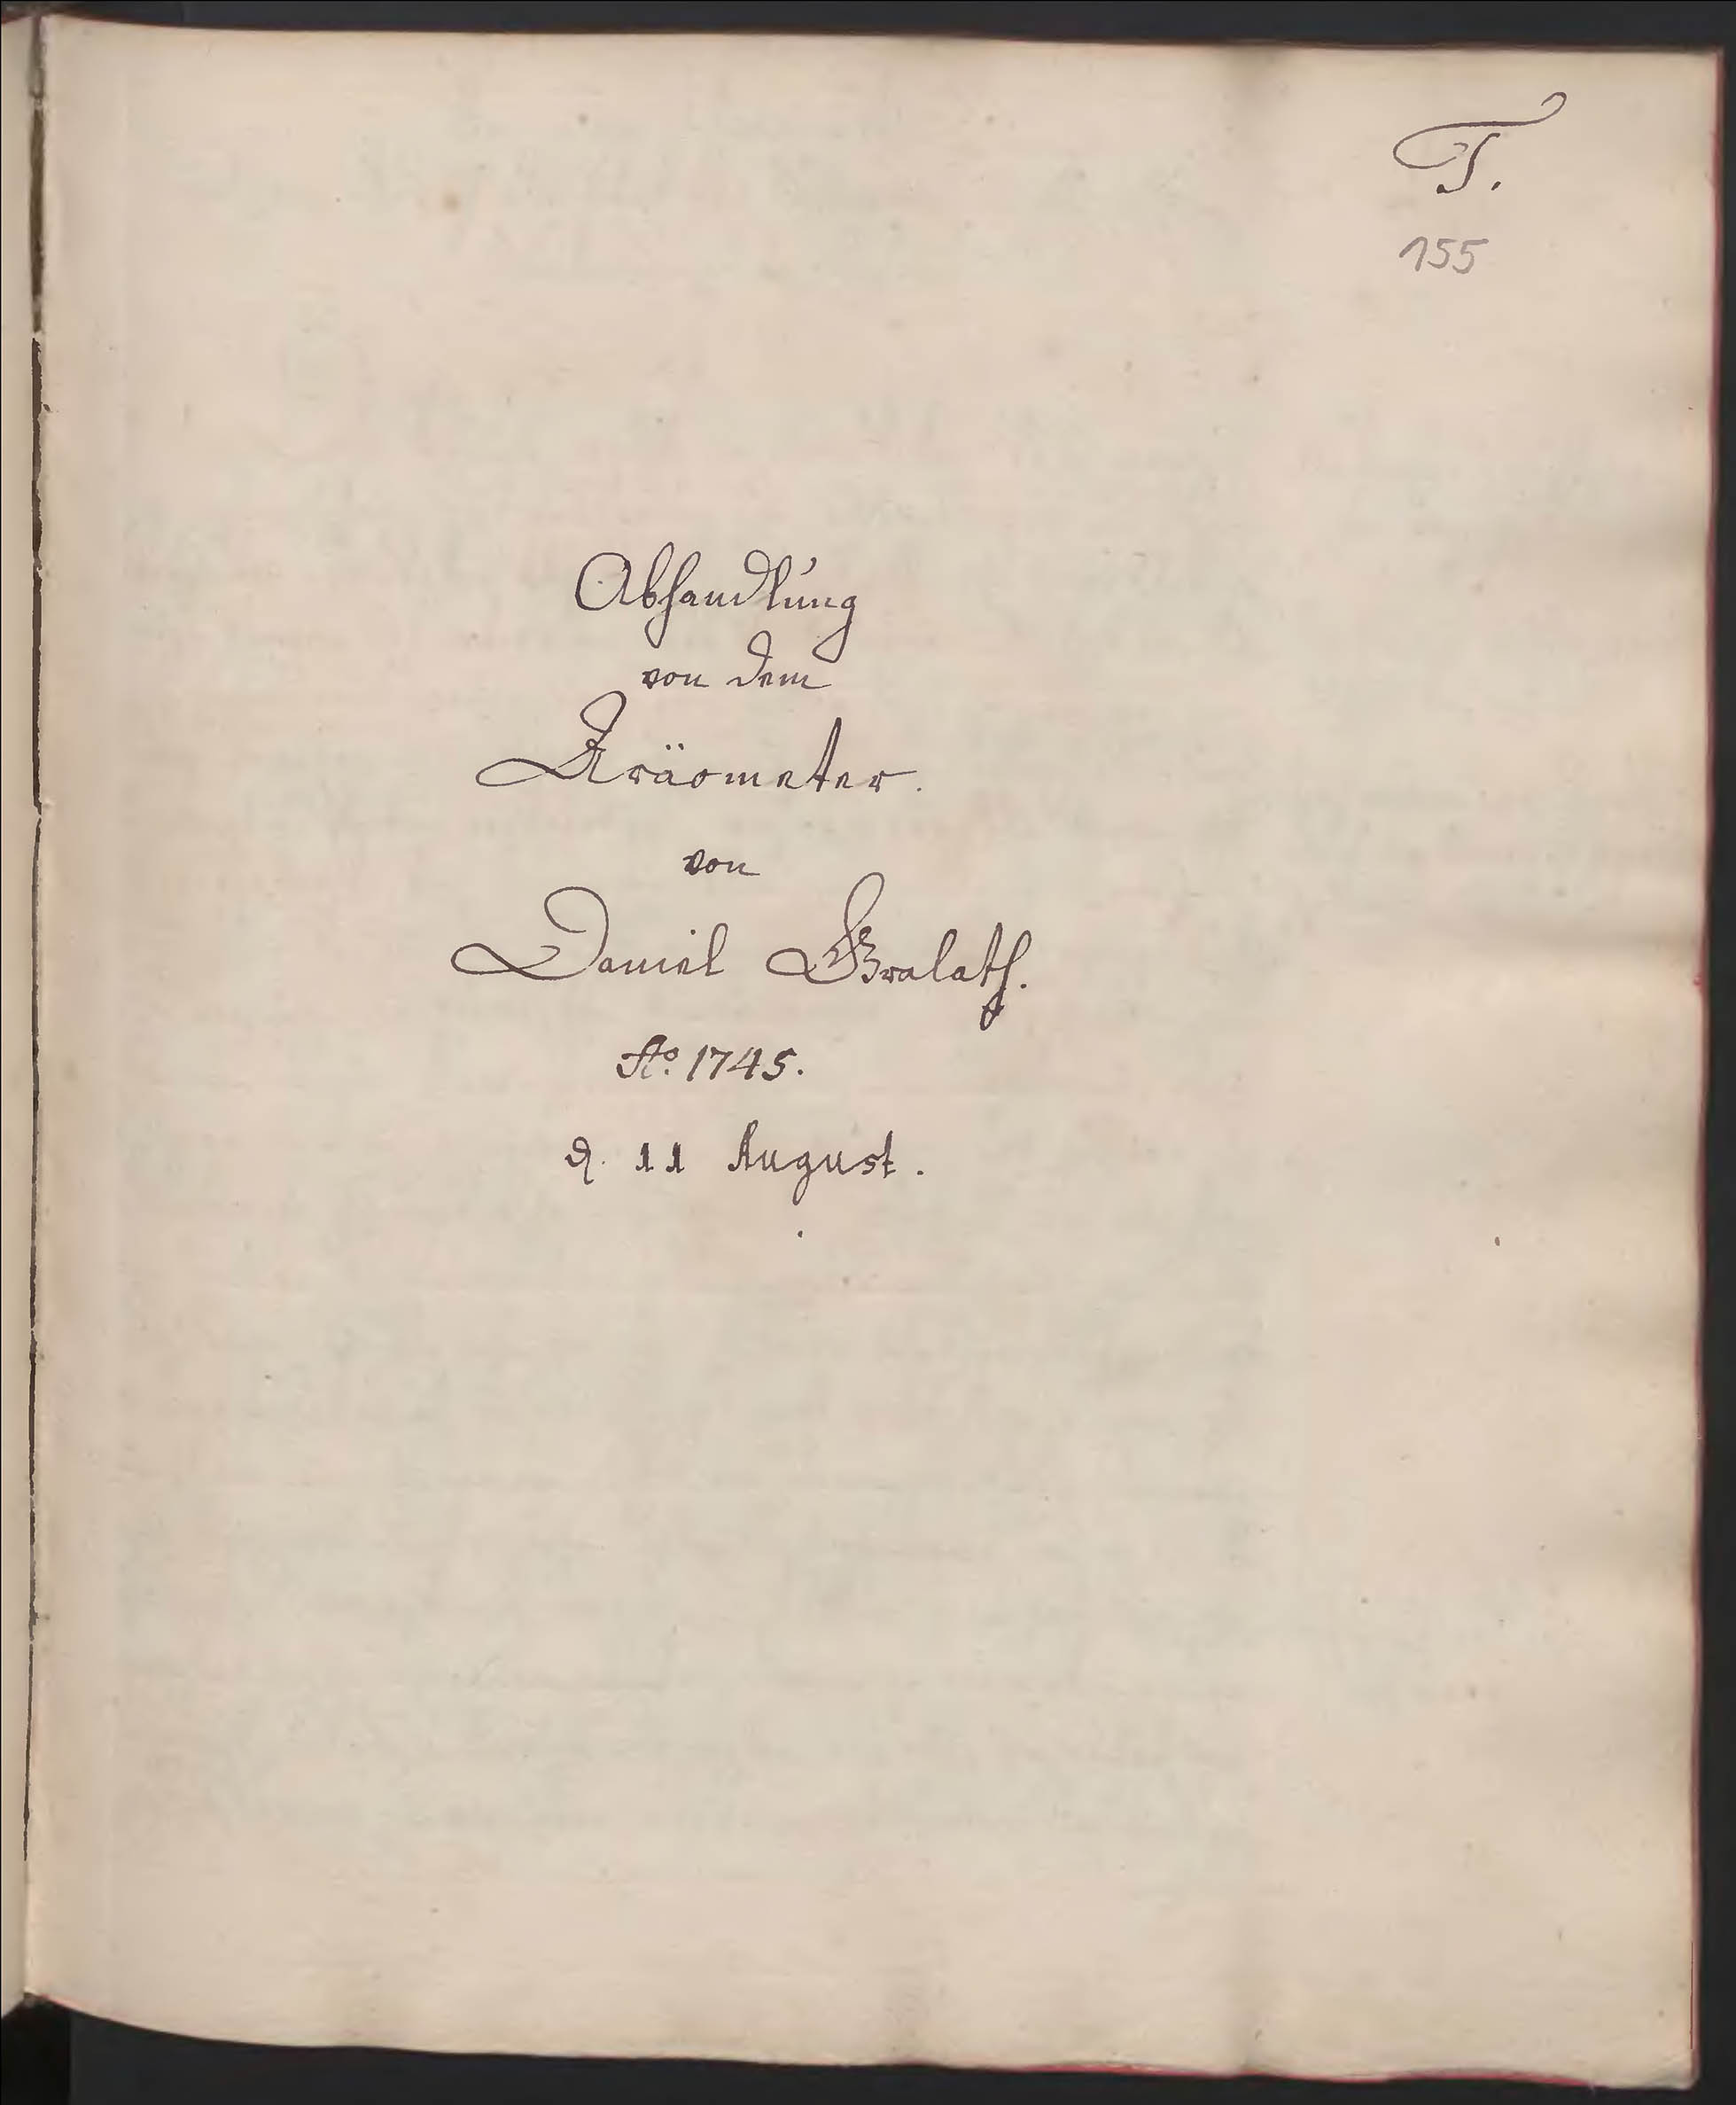 T.
155
Abhandlung
von dem
Aräometer.
von
Daniel Gralath.
Ao. 1745.
d. 11 August.